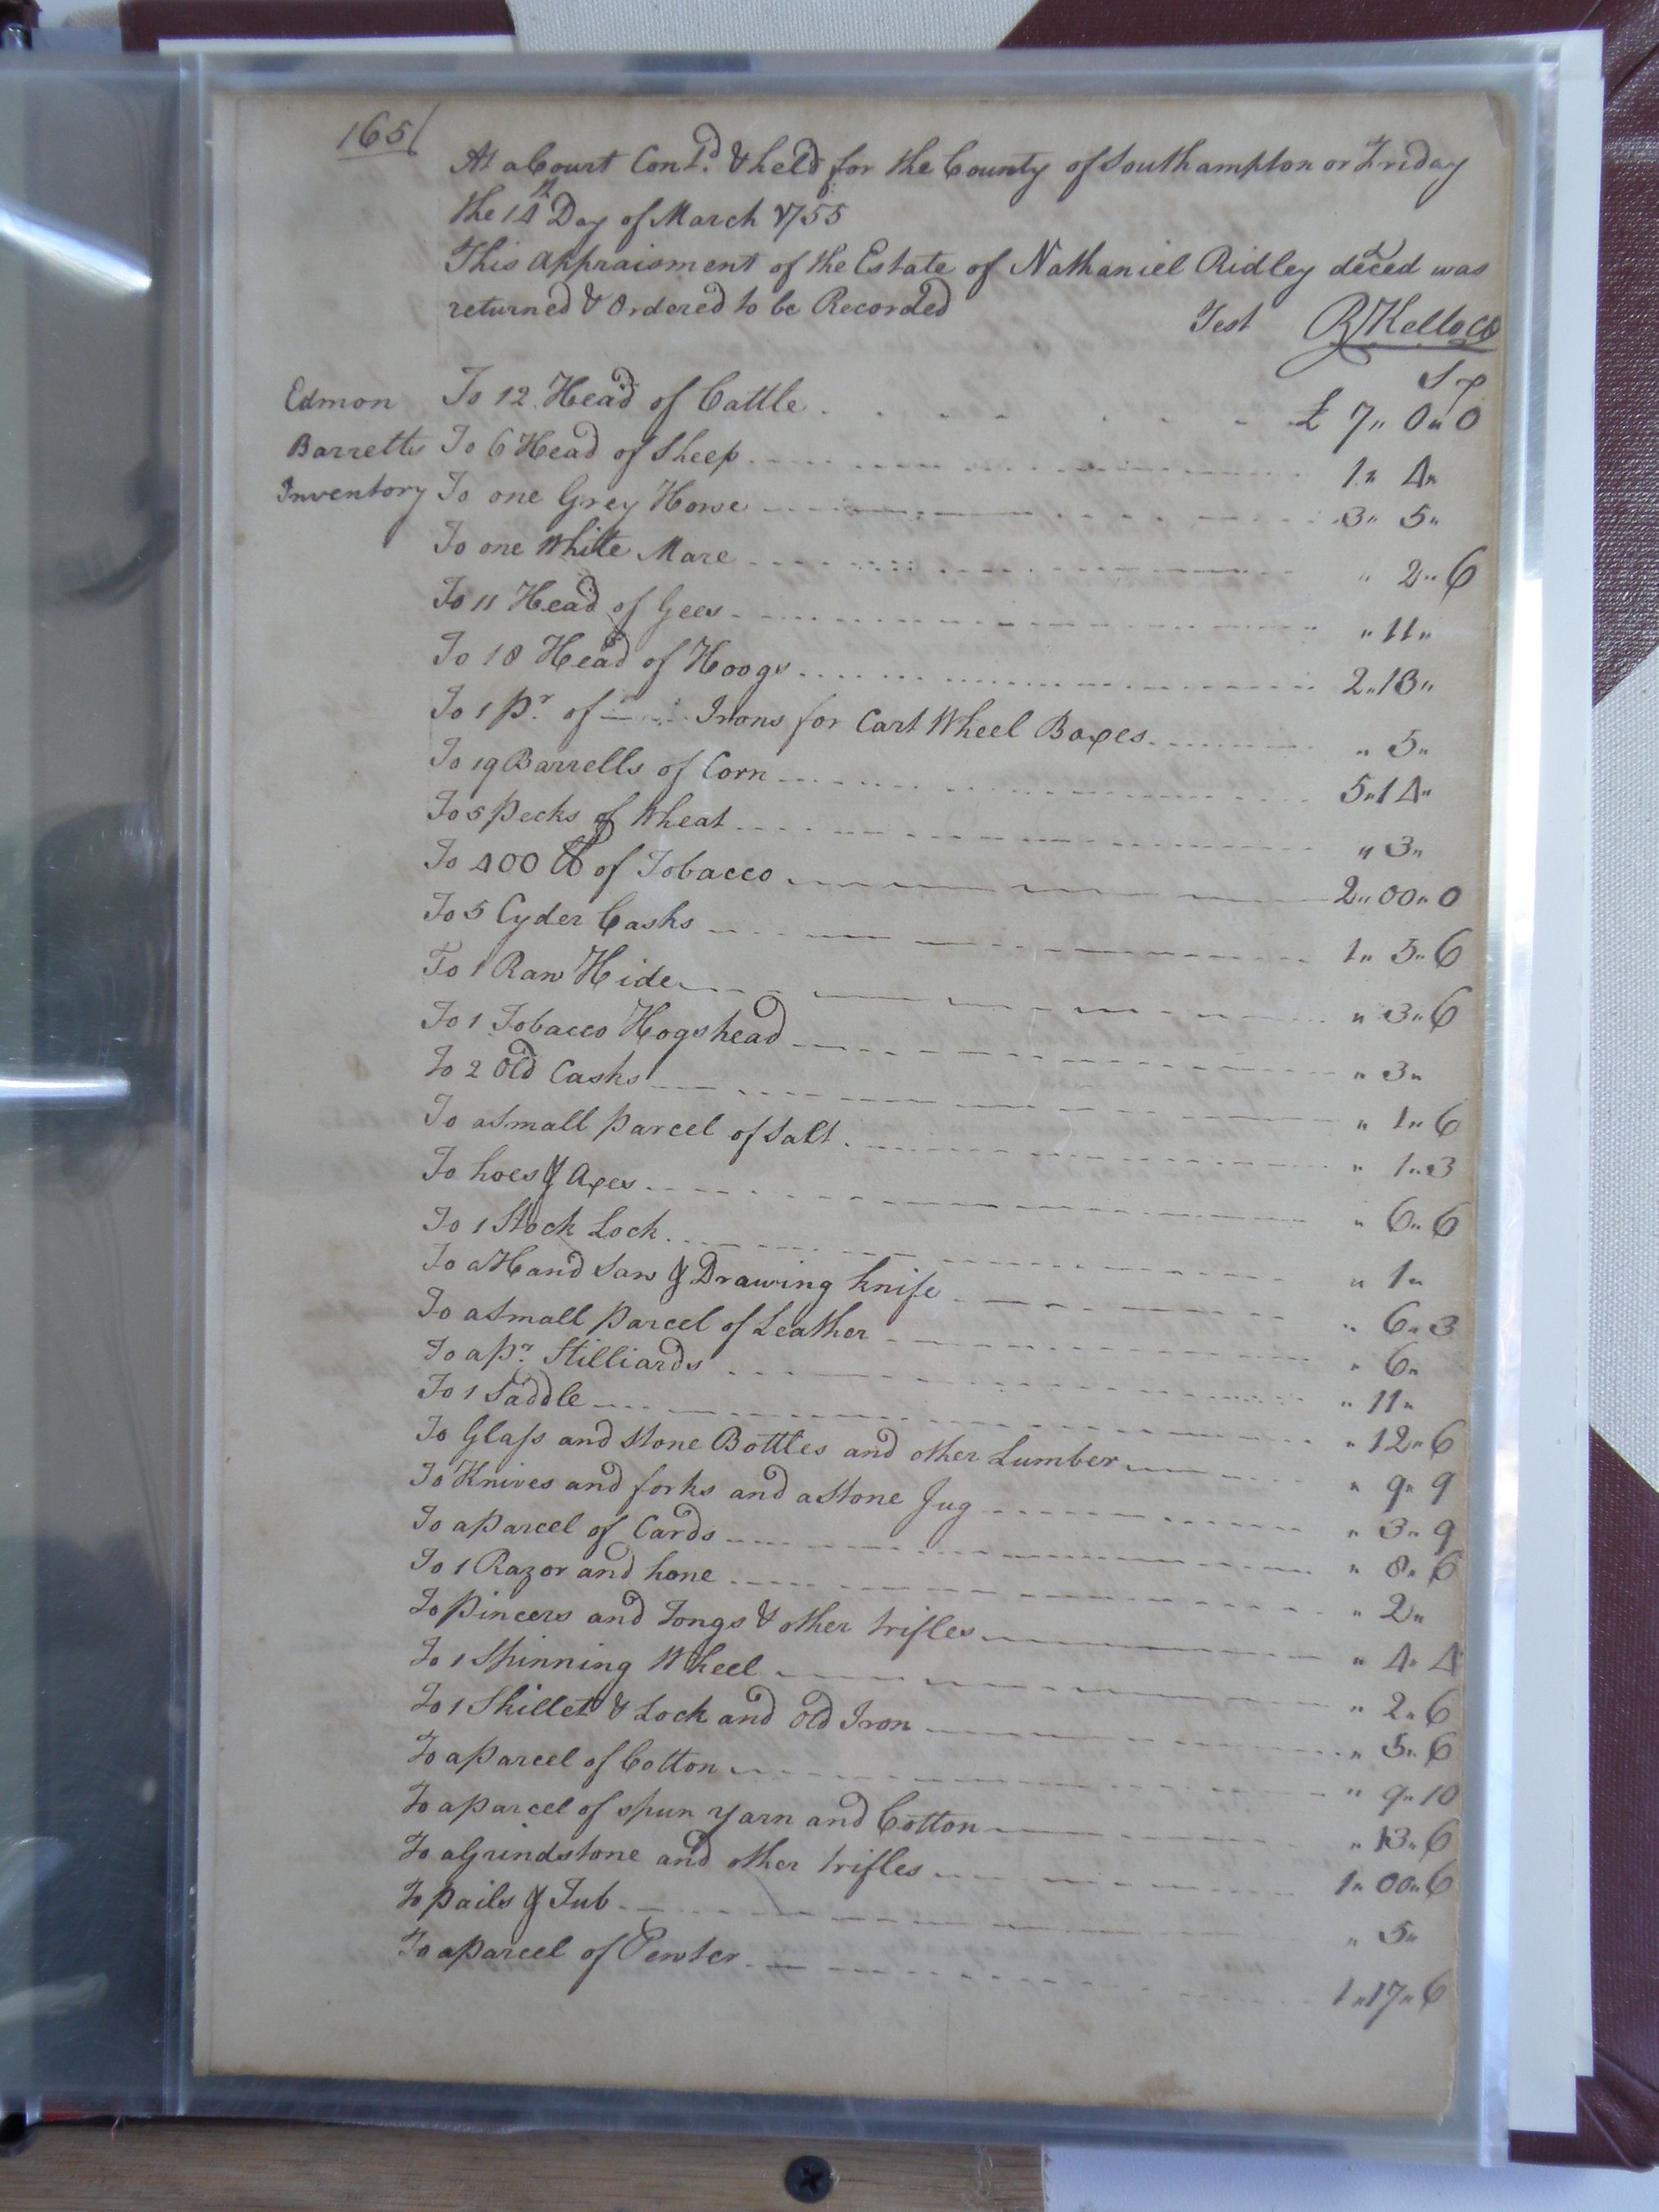 165
At a Court Cont.d & held for the County of Southampton or Friday
the 14th Day of March 1755
This Appraisment of the Estate of Nathaniel Ridley deced was
returned & Ordered to be Recorded
Test R Kello CC
S
Edmon To 12 Head of Cattle £ 7 " 0 " 0
Barretts To 6 Head of Sheep 1 " 4 "
Inventory To one Grey Horse 3 " 5 "
To one White Mare " 2 " 6
To 11 Head of Gees " 11 "
To 18 Head of Hoogs 2 " 13 "
To 1 pr. of Irons for Cart Wheel Boxes " 5 "
To 19 Barrells of Corn 5 " 14 "
To 5 pecks of Wheat " 3 "
To 400 lb of Tobacco 2 " 00 " 0
To 5 Cyder Casks 1 " 5 " 6
To 1 Raw Hide " 3 " 6
To 1 Tobacco Hogshead " 3 "
To 2 Old Casks " 1 " 6
To a Small parcel of Salt " 1 " 3
To hoes & Axes " 6 " 6
To 1 Stock Lock " 1 "
To a Hand Saw & Drawing knife " 6 " 3
To a Small parcel of Leather " 6 "
To a pr. Stilliards " 11 "
To 1 Saddle " 12 " 6
To Glass and Stone Bottles and other Lumber " 9 " 9
To Knives and forks and a Stone Jug " 3 " 9
To a parcel of Cards " 8 " 6
To 1 Razor and hone " 2 "
To pincers and Tongs & other trifles " 4 " 4
To 1 Spinning Wheel " 2 " 6
To 1 Skillet & Lock and old Iron " 5 " 6
To a parcel of Cotton " 9 " 10
To a parcel of spun yarn and Cotton " 13 " 6
To a Grindstone and other trifles 1 " 00 " 6
To pails & Tub " 5 "
To a parcel of Pewter 1 " 17 " 6